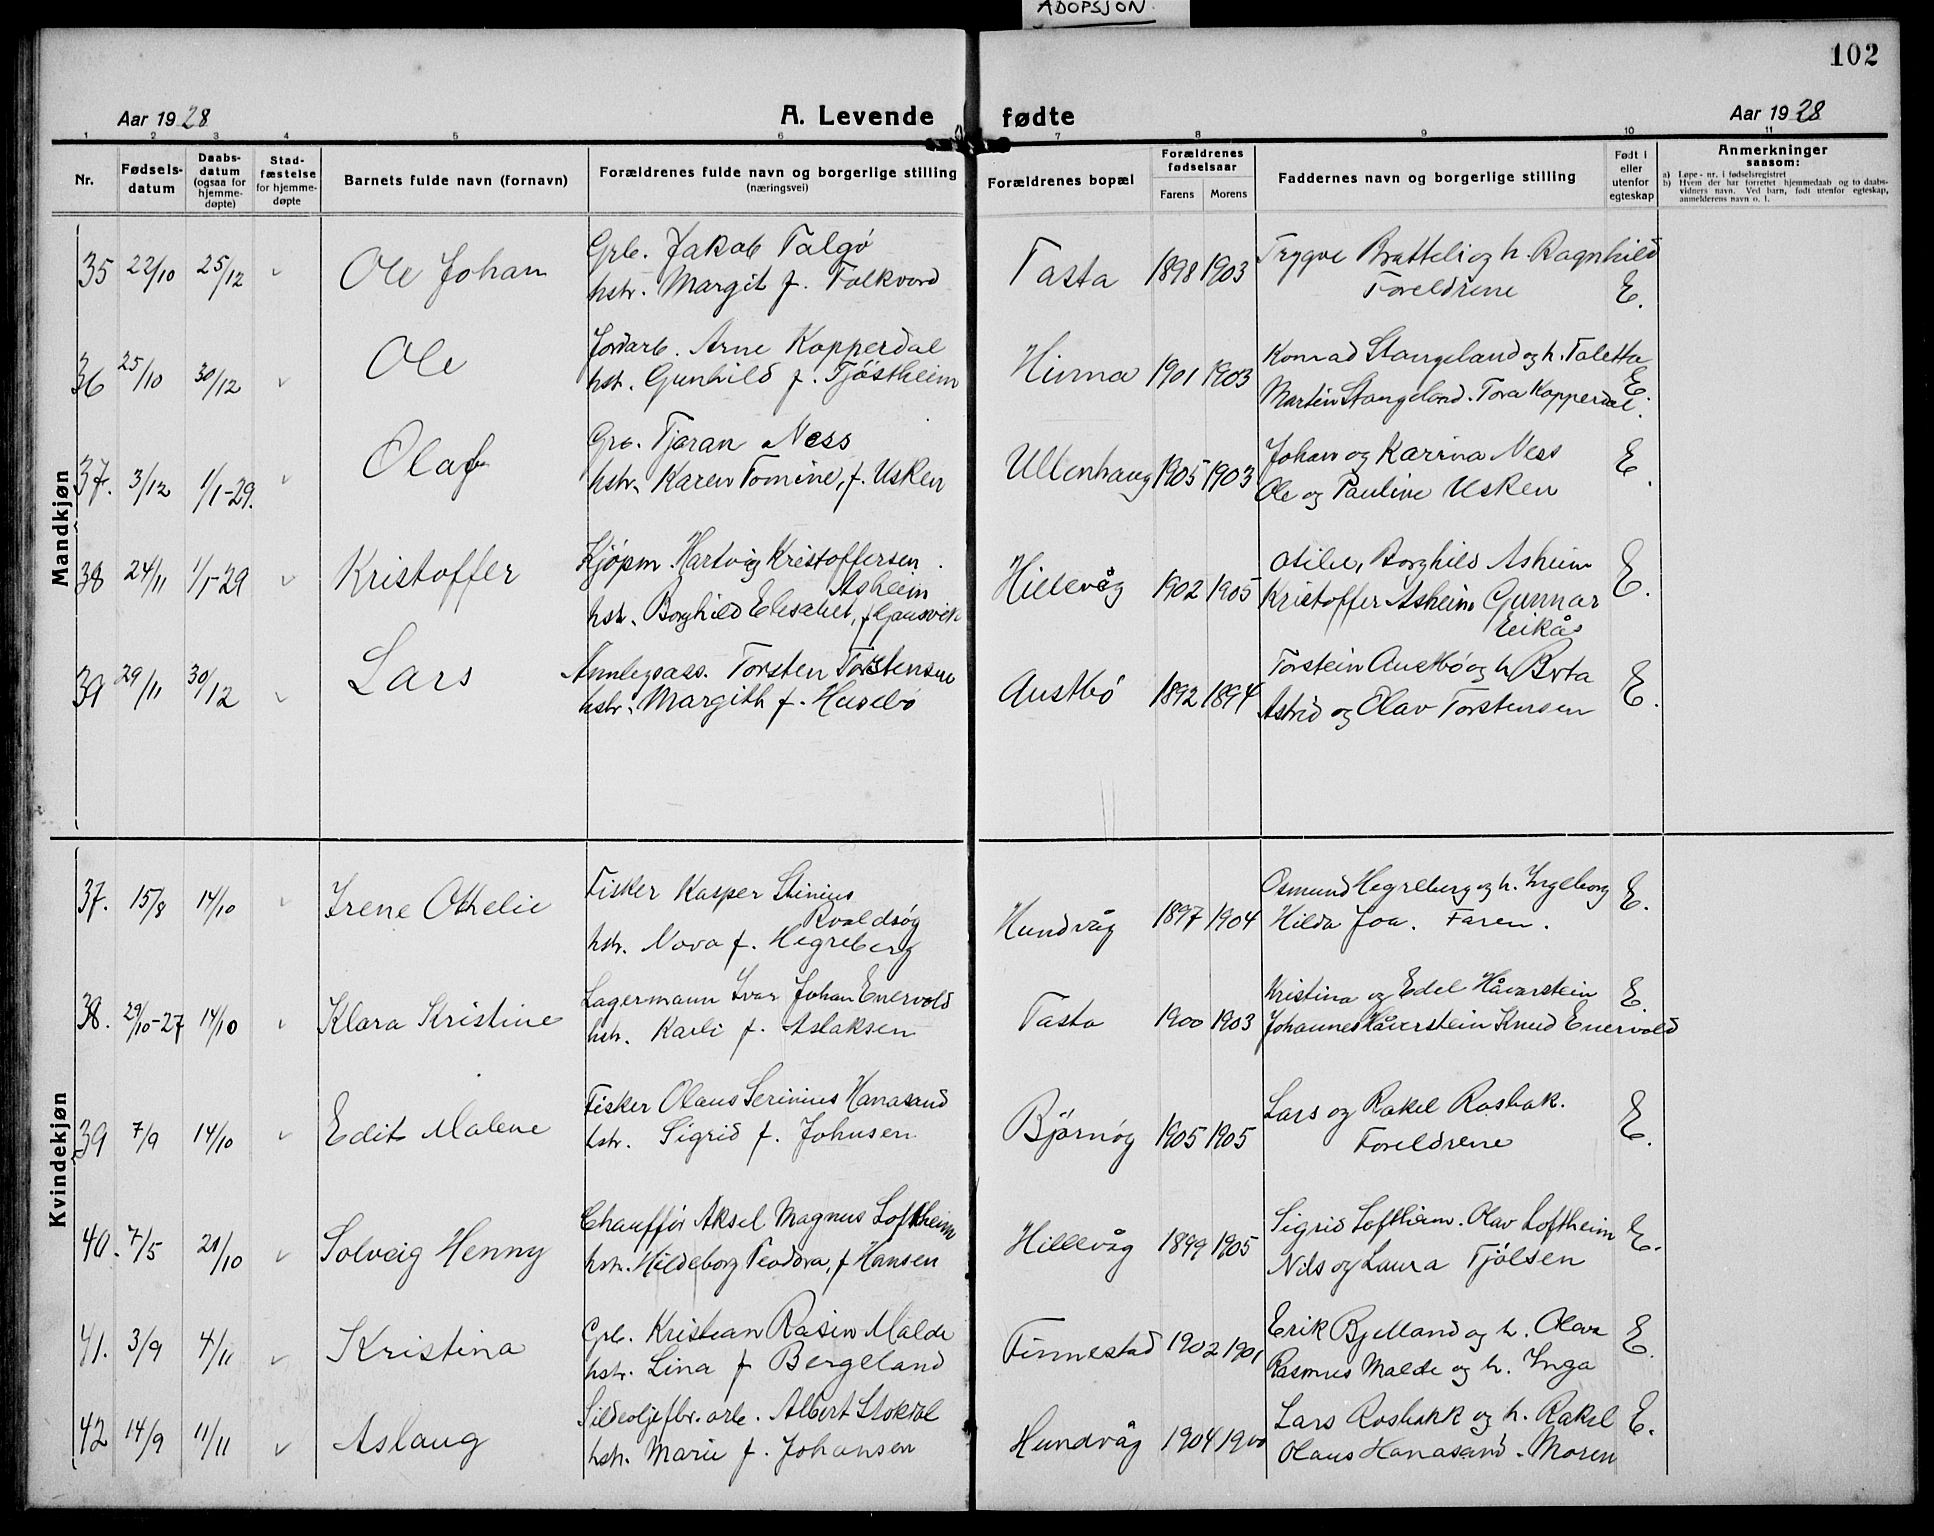 ADOPSJON.
102
Aar 1928
A. Levende fødte
Aar 1928
1 2 3 4 5 6 7 8 9 10 11
Nr.
Fødsels-
datum
Daabs-
datum
(ogsaa for
hjemme-
døpte)
Stad-
fæstelse
for hjemme-
døpte
Barnets fulde navn (fornavn)
Forældrenes fulde navn og borgerlige stilling
(næringsvei)
Forældrenes bopæl
Forældrenes
fødselsaar
Farens Morens
Faddernes navn og borgerlige stilling
Født i
eller
utenfor
egteskap
Anmerkninger
saasom:
a) Løpe - nr. i fødselsregistret
b) Hvem der har forrettet hjemmedaab og to daabs-
vidners navn. Ved barn, født utenfor egteskap,
anmelderens navn o. l.
Mandkjøn
35 22/10 25/12 Ole Johan
Grb. Jakob Talgø
hstr. Margit f. Folkvord
Tasta 1898 1903
Trygve Bratteli og h. Ragnhild
Foreldrene E.
36 25/10 30/12 Ole
Jordarb. Arne Kopperdal
hstr. Gunhild f. Tjøstheim
Hinna 1901 1903
Konrad Stangeland og h. Taletta
Martin Stangeland. Tora Kopperdal. E.
37. 3/12 1/1-29. Olaf
Grb. Tjøran Ness
hstr. Karen Tomine, f. Usken
Ullenhaug 1905 1903
Johan og Karina Ness
Ole og Pauline Usken E.
38 24/11 1/1-29 Kristoffer
Kjøpm. Hartvig Kristoffersen
Asheim
hstr. Borghild Elisabet, f.
Hillevåg 1902 1905
Borghild Asheim
Kristoffer Asheim Gunnar
Eikås E.
39 29/11 30/12 Lars
Torsten Torstensen
hstr. Margith f. Husebø
Austbø 1892 1894
Torstein Austbø og h. Berta
Astrid og Olav Torstensen E.
Kvindekjøn
37. 15/8 14/10 Irene Othelie
Fisker Kasper Stinius
Roaldsøy
hstr. Nova f. Hegreberg
Hundvåg 1897 1904
Osmund Hegreberg og h. Ingeborg
Hilda Joa. Faren. E.
38. 29/10-27 14/10 Klara Kristine
Lagermann Ivar Johan Enervold
hstr. Karli f. Aslaksen
Tasta 1900 1903
Kristina og Edel Håvarstein
Johannes Håvarstein Knud Enervold E.
39 7/9 14/10 Edit Malene
Fisker Olaus Serinius Hanasand
hstr. Sigrid f. Johnsen
Bjørnøy 1905 1905
Lars og Rakel Rosbak.
Foreldrene E.
40. 7/5 21/10 Solveig Henny
Chauffør Aksel Magnus Loftheim
hstr. Hildeborg Teodora, f Hansen
Hillevåg 1899 1905
Sigrid Loftheim. Olav Loftheim
Nils og Laura Tjølsen E.
41. 3/9 4/11 Kristina
Grb. Kristian Rasin Malde
hstr. Lina f Bergeland
Finnestad 1902 1901
Erik Bjelland og h. Olava
Rasmus Malde og h. Inga E.
42 14/9 11/11 Aslaug
Sildoljefbr. arb. Albert Stokdal
hstr. Marie f. Johansen
Hundvåg 1904 1900
Lars Rosbakk og h. Rakel
Olaus Hanasand. Moren E.